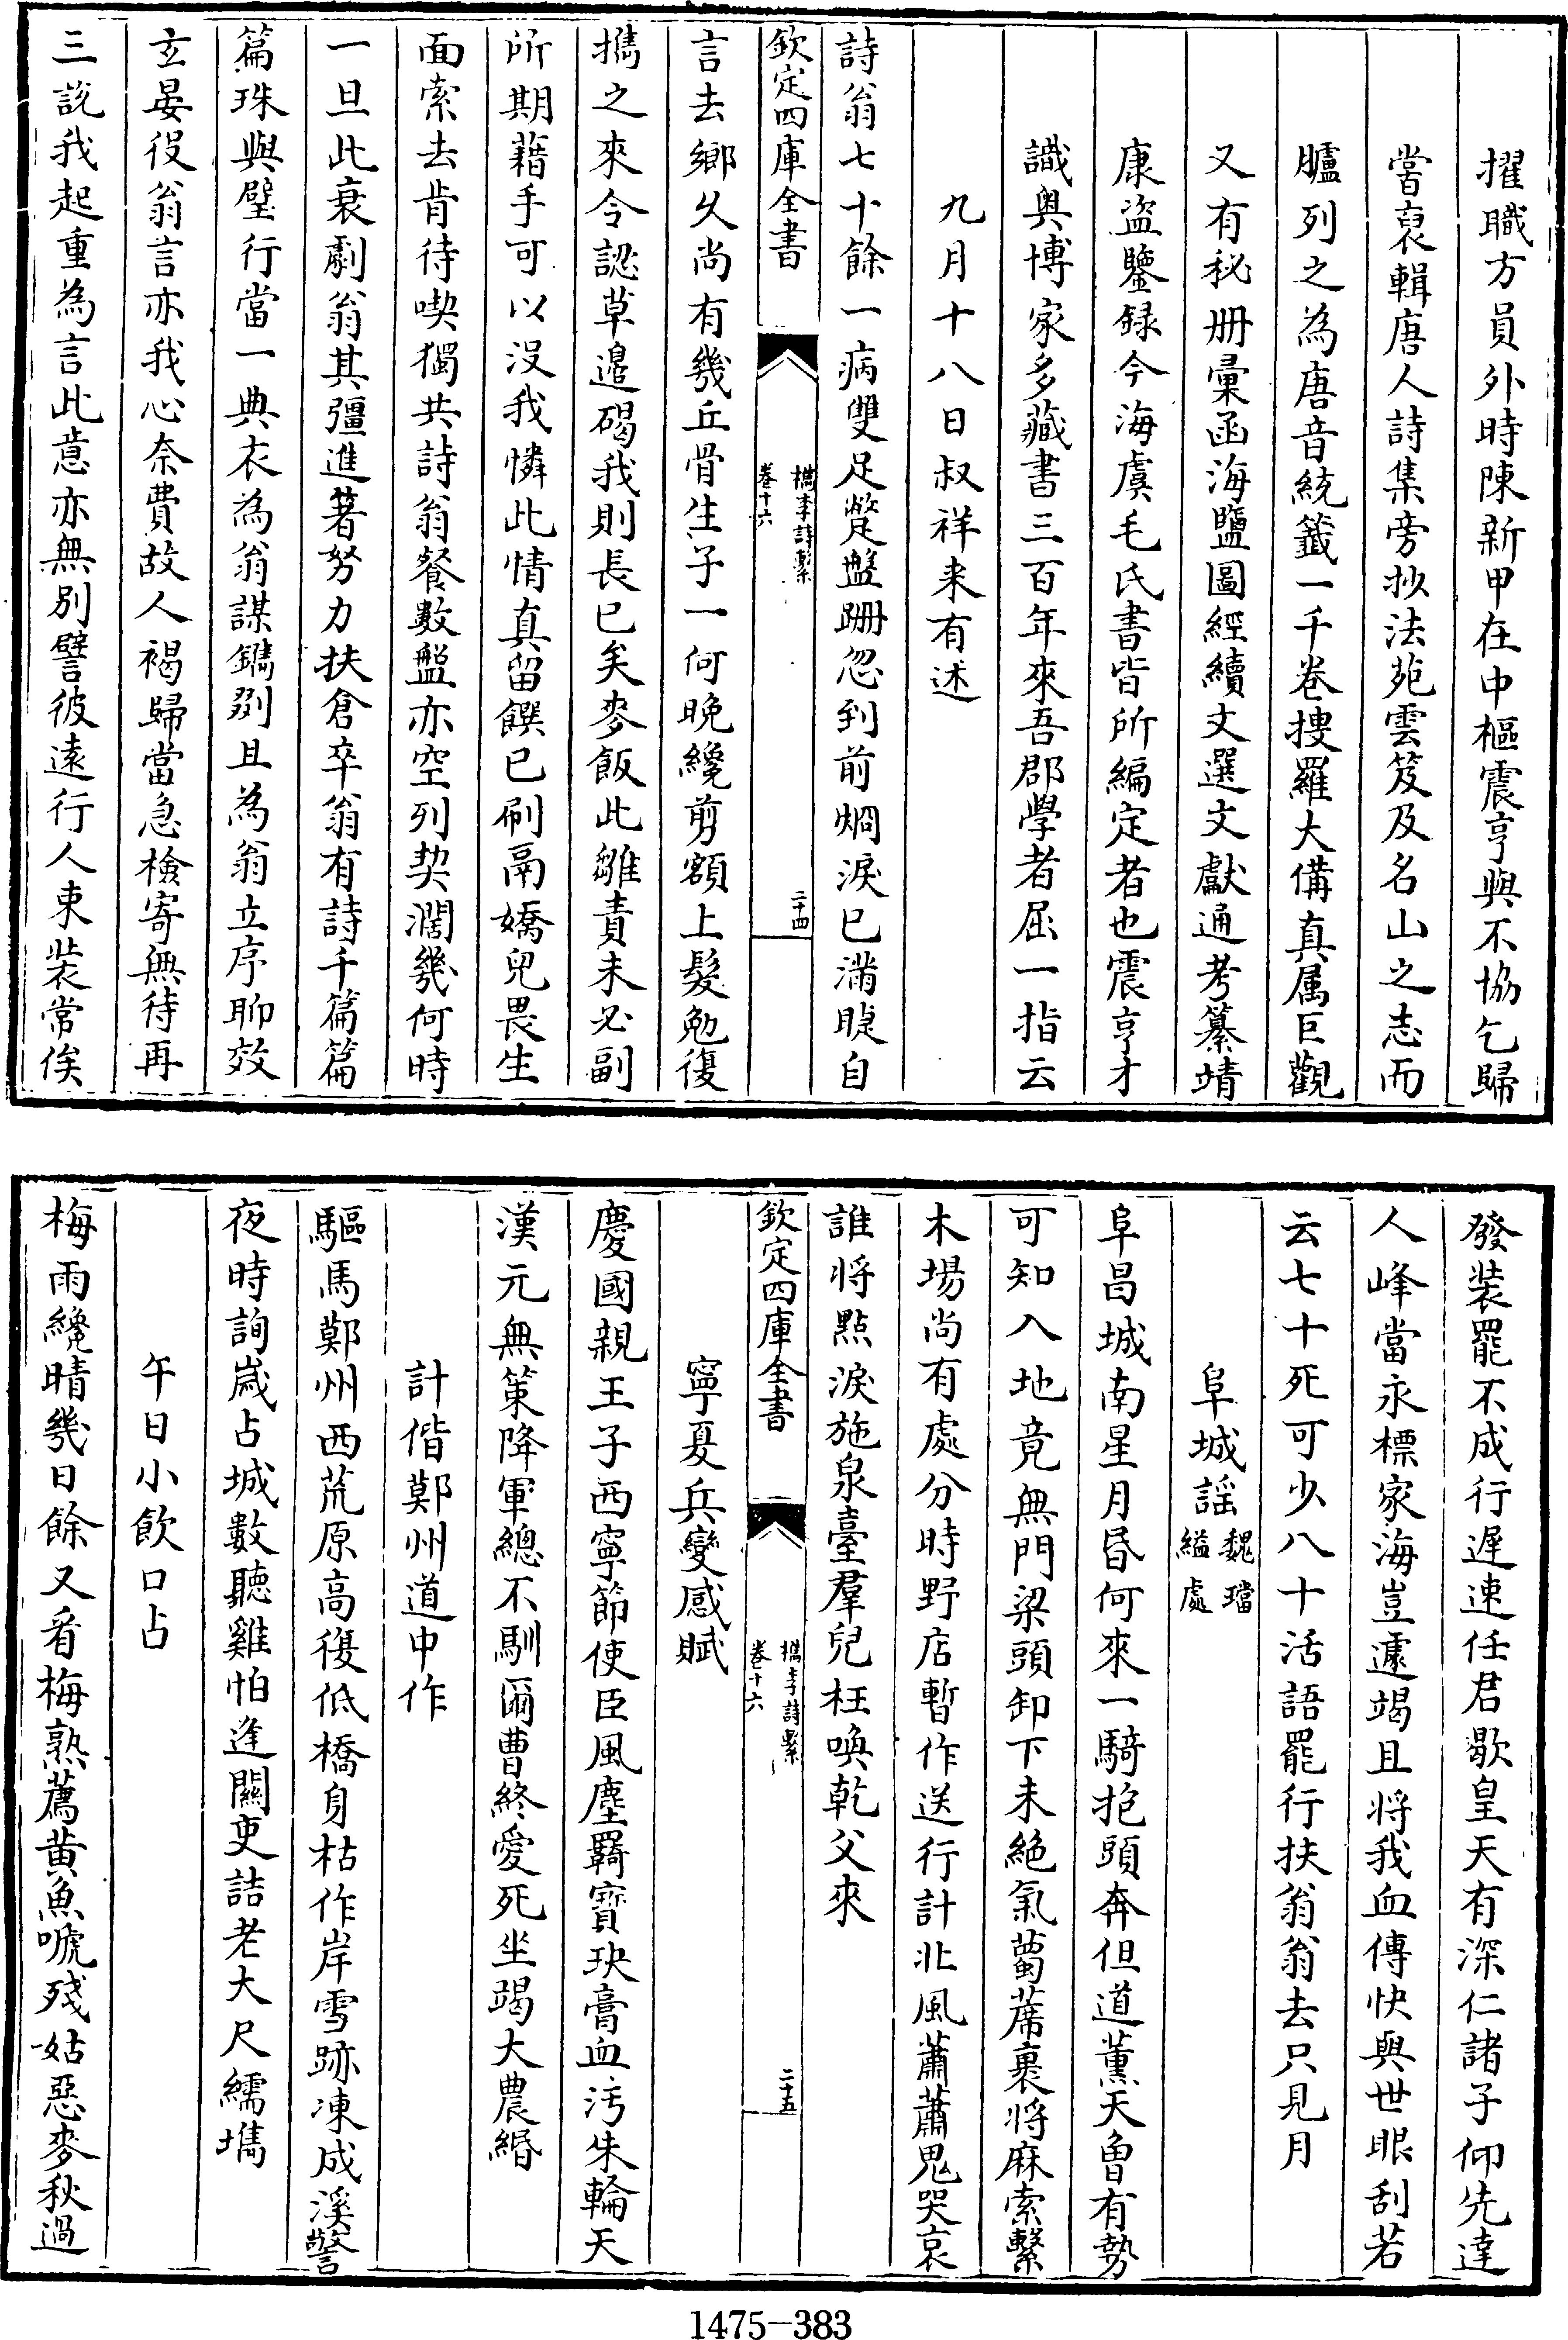 擢職方員外時陳新甲在中樞震亨與不協乞歸
嘗裒輯唐人詩集旁抄法苑雲笈及名山之志而
臚列之為唐音統籤一千卷搜羅大備真属巨觀
又有秘册彙函海鹽圖經續文選文獻通考纂靖
康盜鑒録今海虞毛氏書皆所編定者也震亨才
識奥博家多藏書三百年來吾郡學者屈一指云
九月十八日叔祥来有述
詩翁七十餘一病雙足蹩盤跚忽到前烱淚已滿睫自
欽定四庫全書
檇李詩繫
卷十六
二十四
言去鄉久尚有幾丘骨生子一何晚纔剪額上髮勉復
攜之來令認草邉碣我則長已矣麥飯此雛責未必副
所期藉手可以没我憐此情真留饌已刷鬲嬌兒畏生
面索去肯待喫獨共詩翁餐數盤亦空列契濶幾何時
一旦此衰劇翁其彊進著努力扶倉卒翁有詩千篇篇
篇珠與璧行當一典衣為翁謀鐫剟且為翁立序聊效
玄晏役翁言亦我心奈費故人褐歸當急檢寄無待再
三說我起重為言此意亦無别譬彼逺行人束裝常俟
發装罷不成行遲速任君歇皇天有深仁諸子仰先達
人峰當永標家海豈遽竭且将我血傳快與世眼刮若
云七十死可少八十活語罷行扶翁翁去只見月
阜城謡
魏璫
縊處
阜昌城南星月昏何來一騎抱頭奔但道薫天曾有勢
可知入地竟無門梁頭卸下未絶氣蔔蓆裹將麻索繫
木場尚有處分時野店暫作送行計北風蕭蕭鬼哭哀
誰将點淚施泉臺羣兒枉喚乾父來
欽定四庫全書
檇李詩繫
卷十六
二十五
寧夏兵變感賦
慶國親王子西寧節使臣風塵羇寳玦膏血汚朱輪天
漢元無策降軍總不馴爾曹終愛死坐竭大農緡
計偕鄭州道中作
驅馬鄭州西荒原高復低橋身枯作岸雪跡凍成溪警
夜時詢嵗占城數聽雞怕逢闗吏詰老大尺繻㩗
午日小飲口占
梅雨纔晴幾日餘又看梅熟薦黄魚嗁殘姑惡麥秋過
1475-383